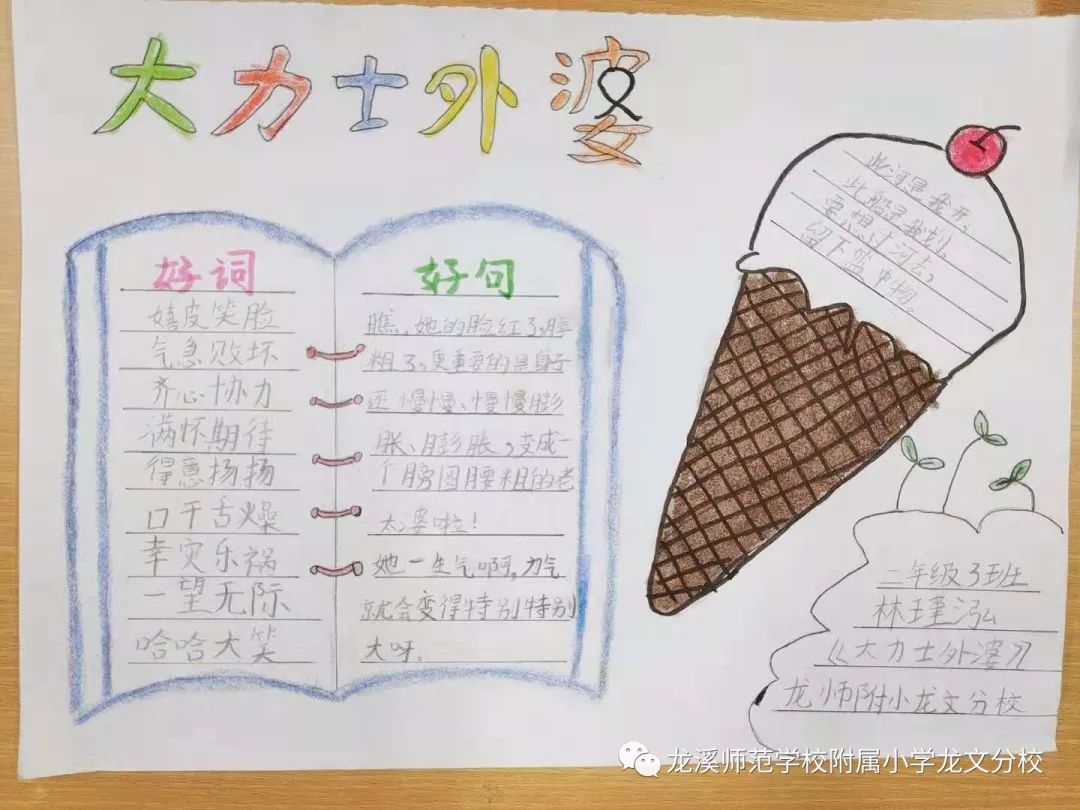 大力士外婆
好词
嬉皮笑脸
气急败坏
齐心协力
满怀期待
得意扬扬
口干舌燥
幸灾乐祸
一望无际
哈哈大笑
好句
瞧、她的脸红了,脖
粗了,更重要的是身子
还慢慢、慢慢膨
胀、膨胀,变成一
个膀圆腰粗的老
太婆啦!
她一生气啊,力气
就会变得特别特别
大呀。
此河是我开,
此船是我划,
要想过河去,
留下盆中物。
二年级3班
林瑾泓
《大力士外婆》
龙师附小龙文分校
龙溪师范学校附属小学龙文分校